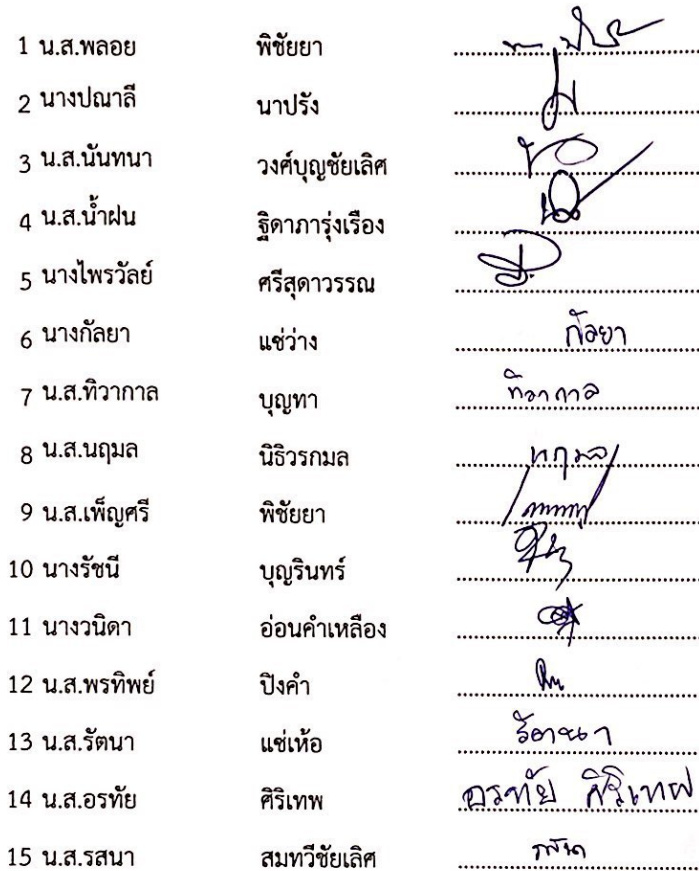 1 น.ส.พลอย พิชัยยา
2 นางปณาลี นาปรัง
3 น.ส.นันทนา วงศ์บุญชัยเลิศ
4 น.ส.น้ำฝน ฐิดาภารุ่งเรือง
5 นางไพรวัลย์ ศรีสุดาวรรณ
6 นางกัลยา แซ่ว่าง กัลยา
7 น.ส.ทิวากาล บุญทา ทิวากาล
8 น.ส.นฤมล นิธิวรกมล นฤมล
9 น.ส.เพ็ญศรี พิชัยยา
10 นางรัชนี บุญรินทร์
11 นางวนิดา อ่อนคำเหลือง
12 น.ส.พรทิพย์ ปิงคำ
13 น.ส.รัตนา แซ่เห้อ
14 น.ส.อรทัย ศิริเทพ อรทัย ศิริเทพ
15 น.ส.รสนา สมทวีชัยเลิศ